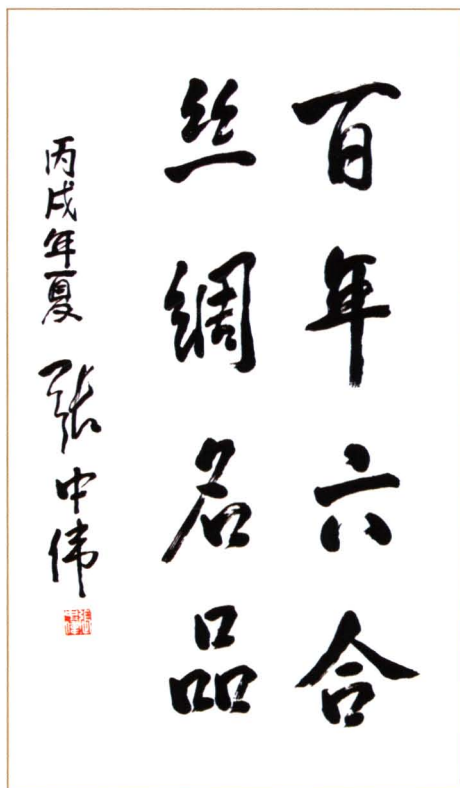 百年六合
丝绸名品
丙戌年夏 张中伟